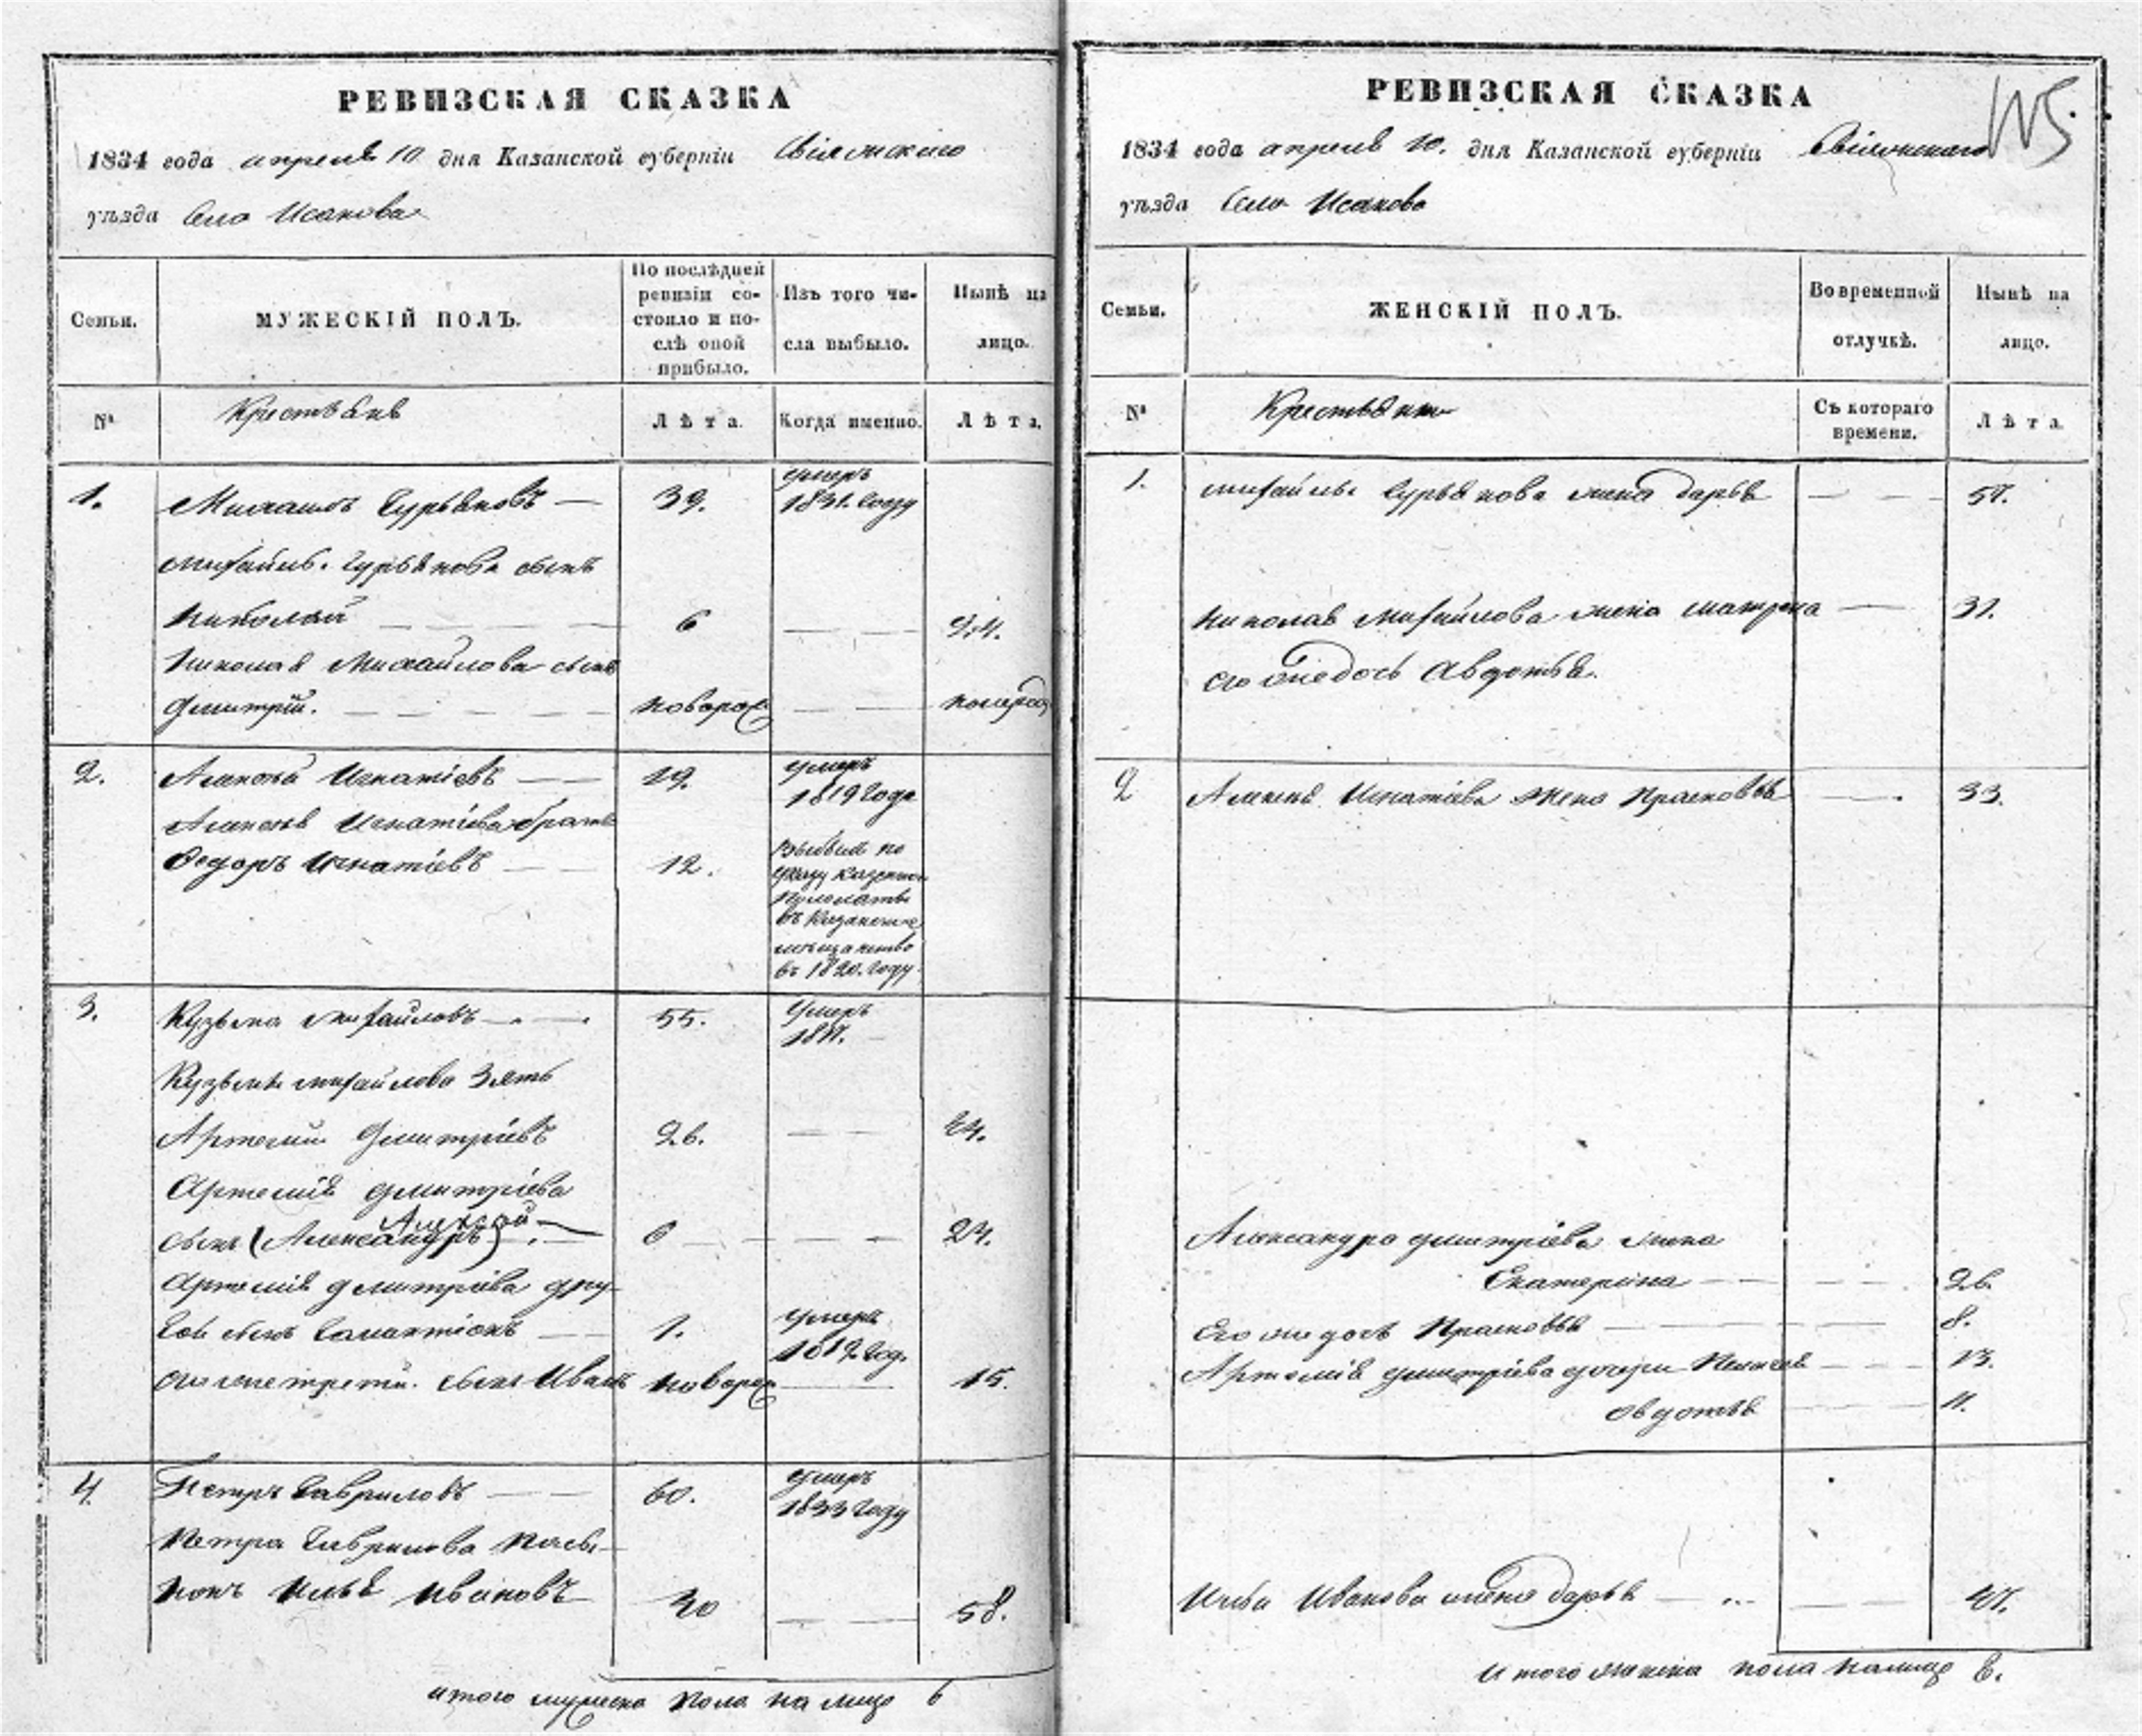 РЕВИЗСКАЯ СКАЗКА
1834 года апреля 10 дня Казанской губерніи Свіяжскаго
уѣзда Село Исаково
Семьи.
МУЖЕСКІЙ ПОЛЪ.
По послѣдней ревизіи состояло и послѣ оной прибыло.
Изъ того числа выбыло.
Нынѣ на лицо.
№
Крестьяне
Лѣта.
Когда именно.
Лѣта.
1.
Михаилъ Гурьяновъ
39.
умеръ 1831. году
Михайлы Гурьянова сынъ
Николай
6
24.
Николая Михайлова сынъ
Дмитрій.
новорож
2.
Алексей Игнатіевъ
19.
умеръ 1819 года
Алексея Игнатіева братъ
Федоръ Игнатіевъ
12.
Выбыл по
указу казенной
Палаты
въ Казанское
мещанство
въ 1820. году.
3.
Кузьма Михайловъ
55.
умеръ
Кузьмы Михайлова Зять
Артемий Дмитріевъ
26.
44.
Артемія Дмитріева
Алексей
сынъ (Александръ)
6
24.
Артемія Дмитріева дру-
гой сынъ Галактіонъ
1.
умеръ
1819. год.
его же третій сынъ Иванъ
новорож
15.
4.
Петръ Гавриловъ
60.
умеръ
1833 году
Петра Гаврилова Пасы-
нокъ Илья Ивановъ
40
58.
итого мужеска пола на лицо 6
РЕВИЗСКАЯ СКАЗКА
1834 года апреля 10. дня Казанской губерніи Свіяжскаго
уѣзда Село Исаково
Семьи.
ЖЕНСКІЙ ПОЛЪ.
Во временной отлучкѣ.
Нынѣ на лицо.
№
Крестьянки
Съ котораго времени.
Лѣта
1.
Михайлы Гурьянова жена Дарья
57.
Николая Михайлова жена Матрена
31.
его же дочь Авдотья.
2
Алексея Игнатіева жена Прасковья
33.
Александра Дмитріева жена
Екатерина
26.
Его же дочь Прасковья
8.
Артемія Дмитріева дочери
13.
Овдотья
11.
Ильи Иванова жена Дарья
47.
итого женска пола налицо 8.